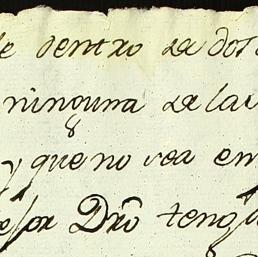 de dentro de dos
ninguna de las
y que no sea em
Dro teng